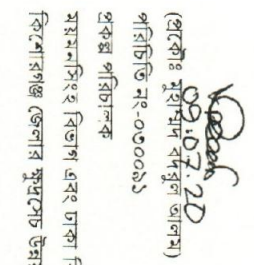 ০৭.০৭.২০
(প্রকৌঃ মুহাম্মদ বদরুল আলম)
পরিচিতি নং-০৩০০৯১
প্রকল্প পরিচালক
ময়মনসিংহ বিভাগ এবং ঢাকা
কিশোরগঞ্জ জেলার ক্ষুদ্রসেচ উন্ন